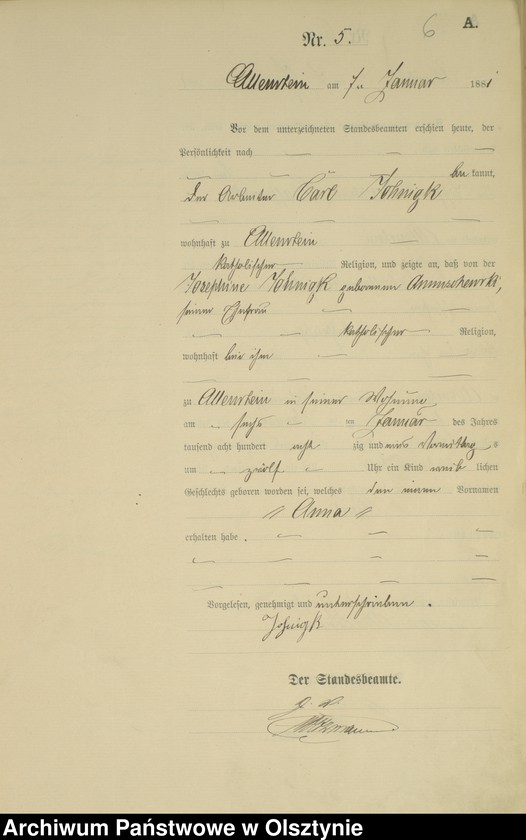 6 A.
Nr. 5.
Allenstein am 7. Januar 1881
Vor dem unterzeichneten Standesbeamten erschien heute, der
Persönlichkeit nach
be kannt,
der Arbeiter Carl Johnigk
wohnhaft zu Allenstein
katholischer Religion, und zeigte an, daß von der
Josephine Johnigk geborenen
seiner Ehefrau
katholischer Religion,
wohnhaft bei ihm
zu Allenstein in seiner Wohnung
am sechs ten Januar des Jahres
tausend acht hundert acht zig und eins Vormittag s
um zwölf Uhr ein Kind weib lichen
Geschlechts geboren worden sei, welches den einen Vornamen
Anna
erhalten habe.
Vorgelesen, genehmigt und unterschrieben.
Johnigk
Der Standesbeamte.
Archiwum Państwowe w Olsztynie